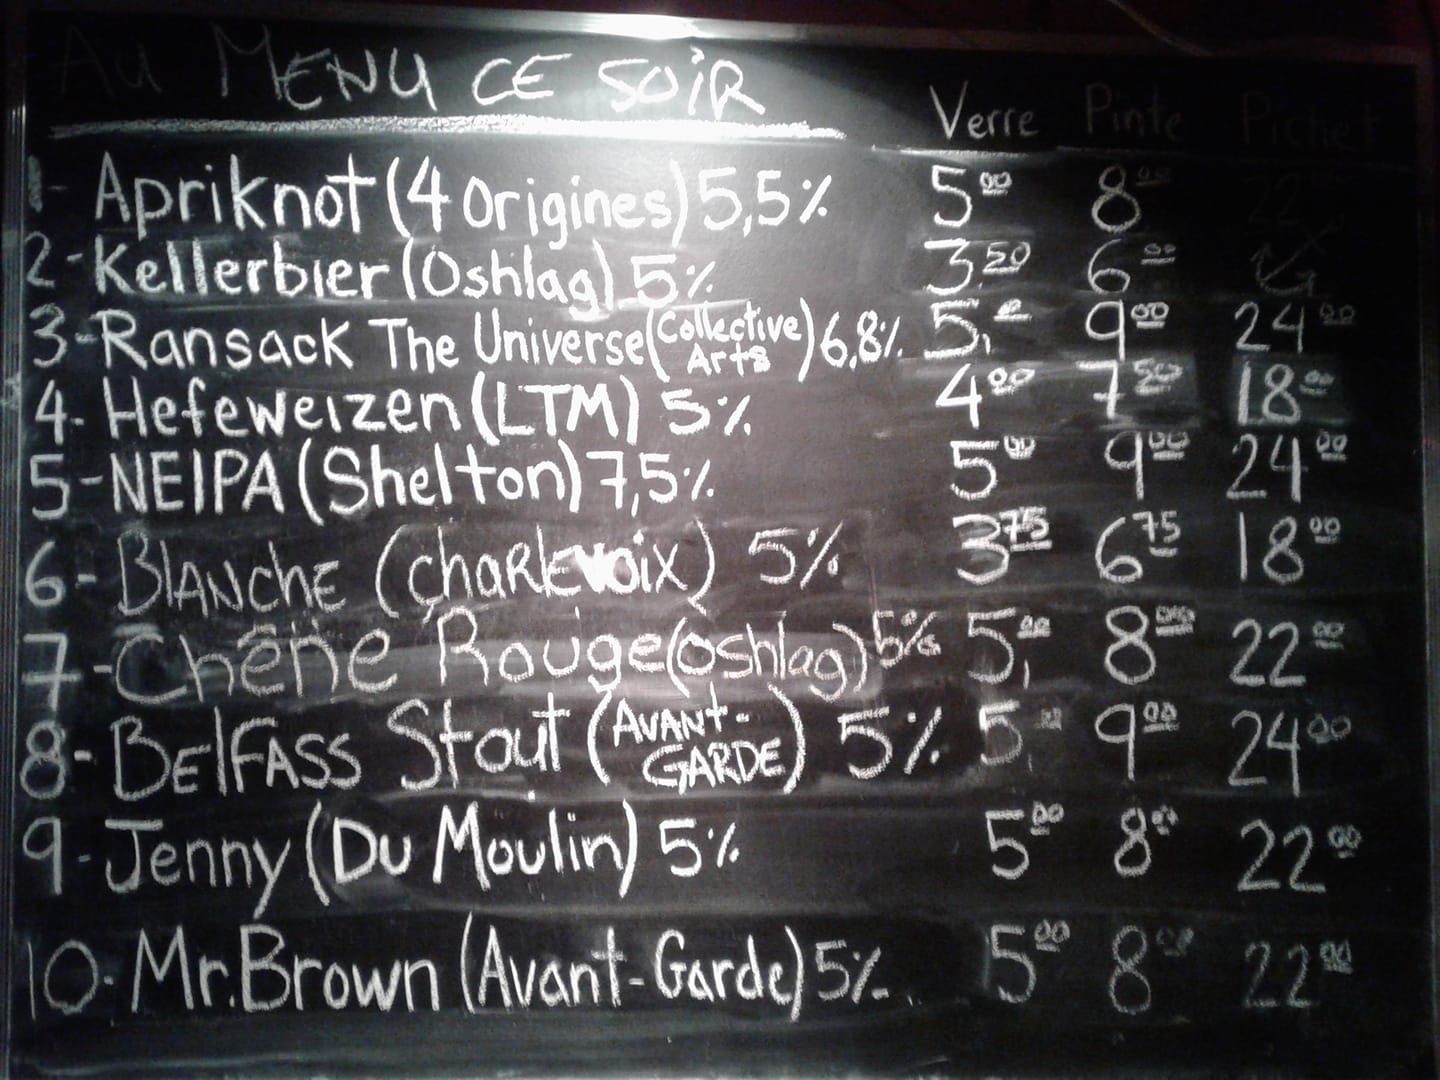 Au MENU CE SOIR Verre Pinte Pichet
1- Apriknot (4 Origines) 5,5% 5.00 8.00 22
2- Kellerbier (Oshlag) 5% 3.50 6.00
3- Ransack The Universe (Collective Arts) 6,8% 5.00 9.00 24.00
4. Hefeweizen (LTM) 5% 4.00 7.50 18.00
5- NEIPA (Shelton) 7,5% 5.00 9.00 24.00
6- BLANCHE (CHARLEVOIX) 5% 3.75 6.75 18.00
7- Chêne Rouge (oshlag) 5% 5.00 8.00 22.00
8- BELFASS Stout (AVANT-GARDE) 5% 5.00 9.00 24.00
9- Jenny (Du Moulin) 5% 5.00 8.00 22.00
10- Mr.Brown (Avant-Garde) 5% 5.00 8.00 22.00